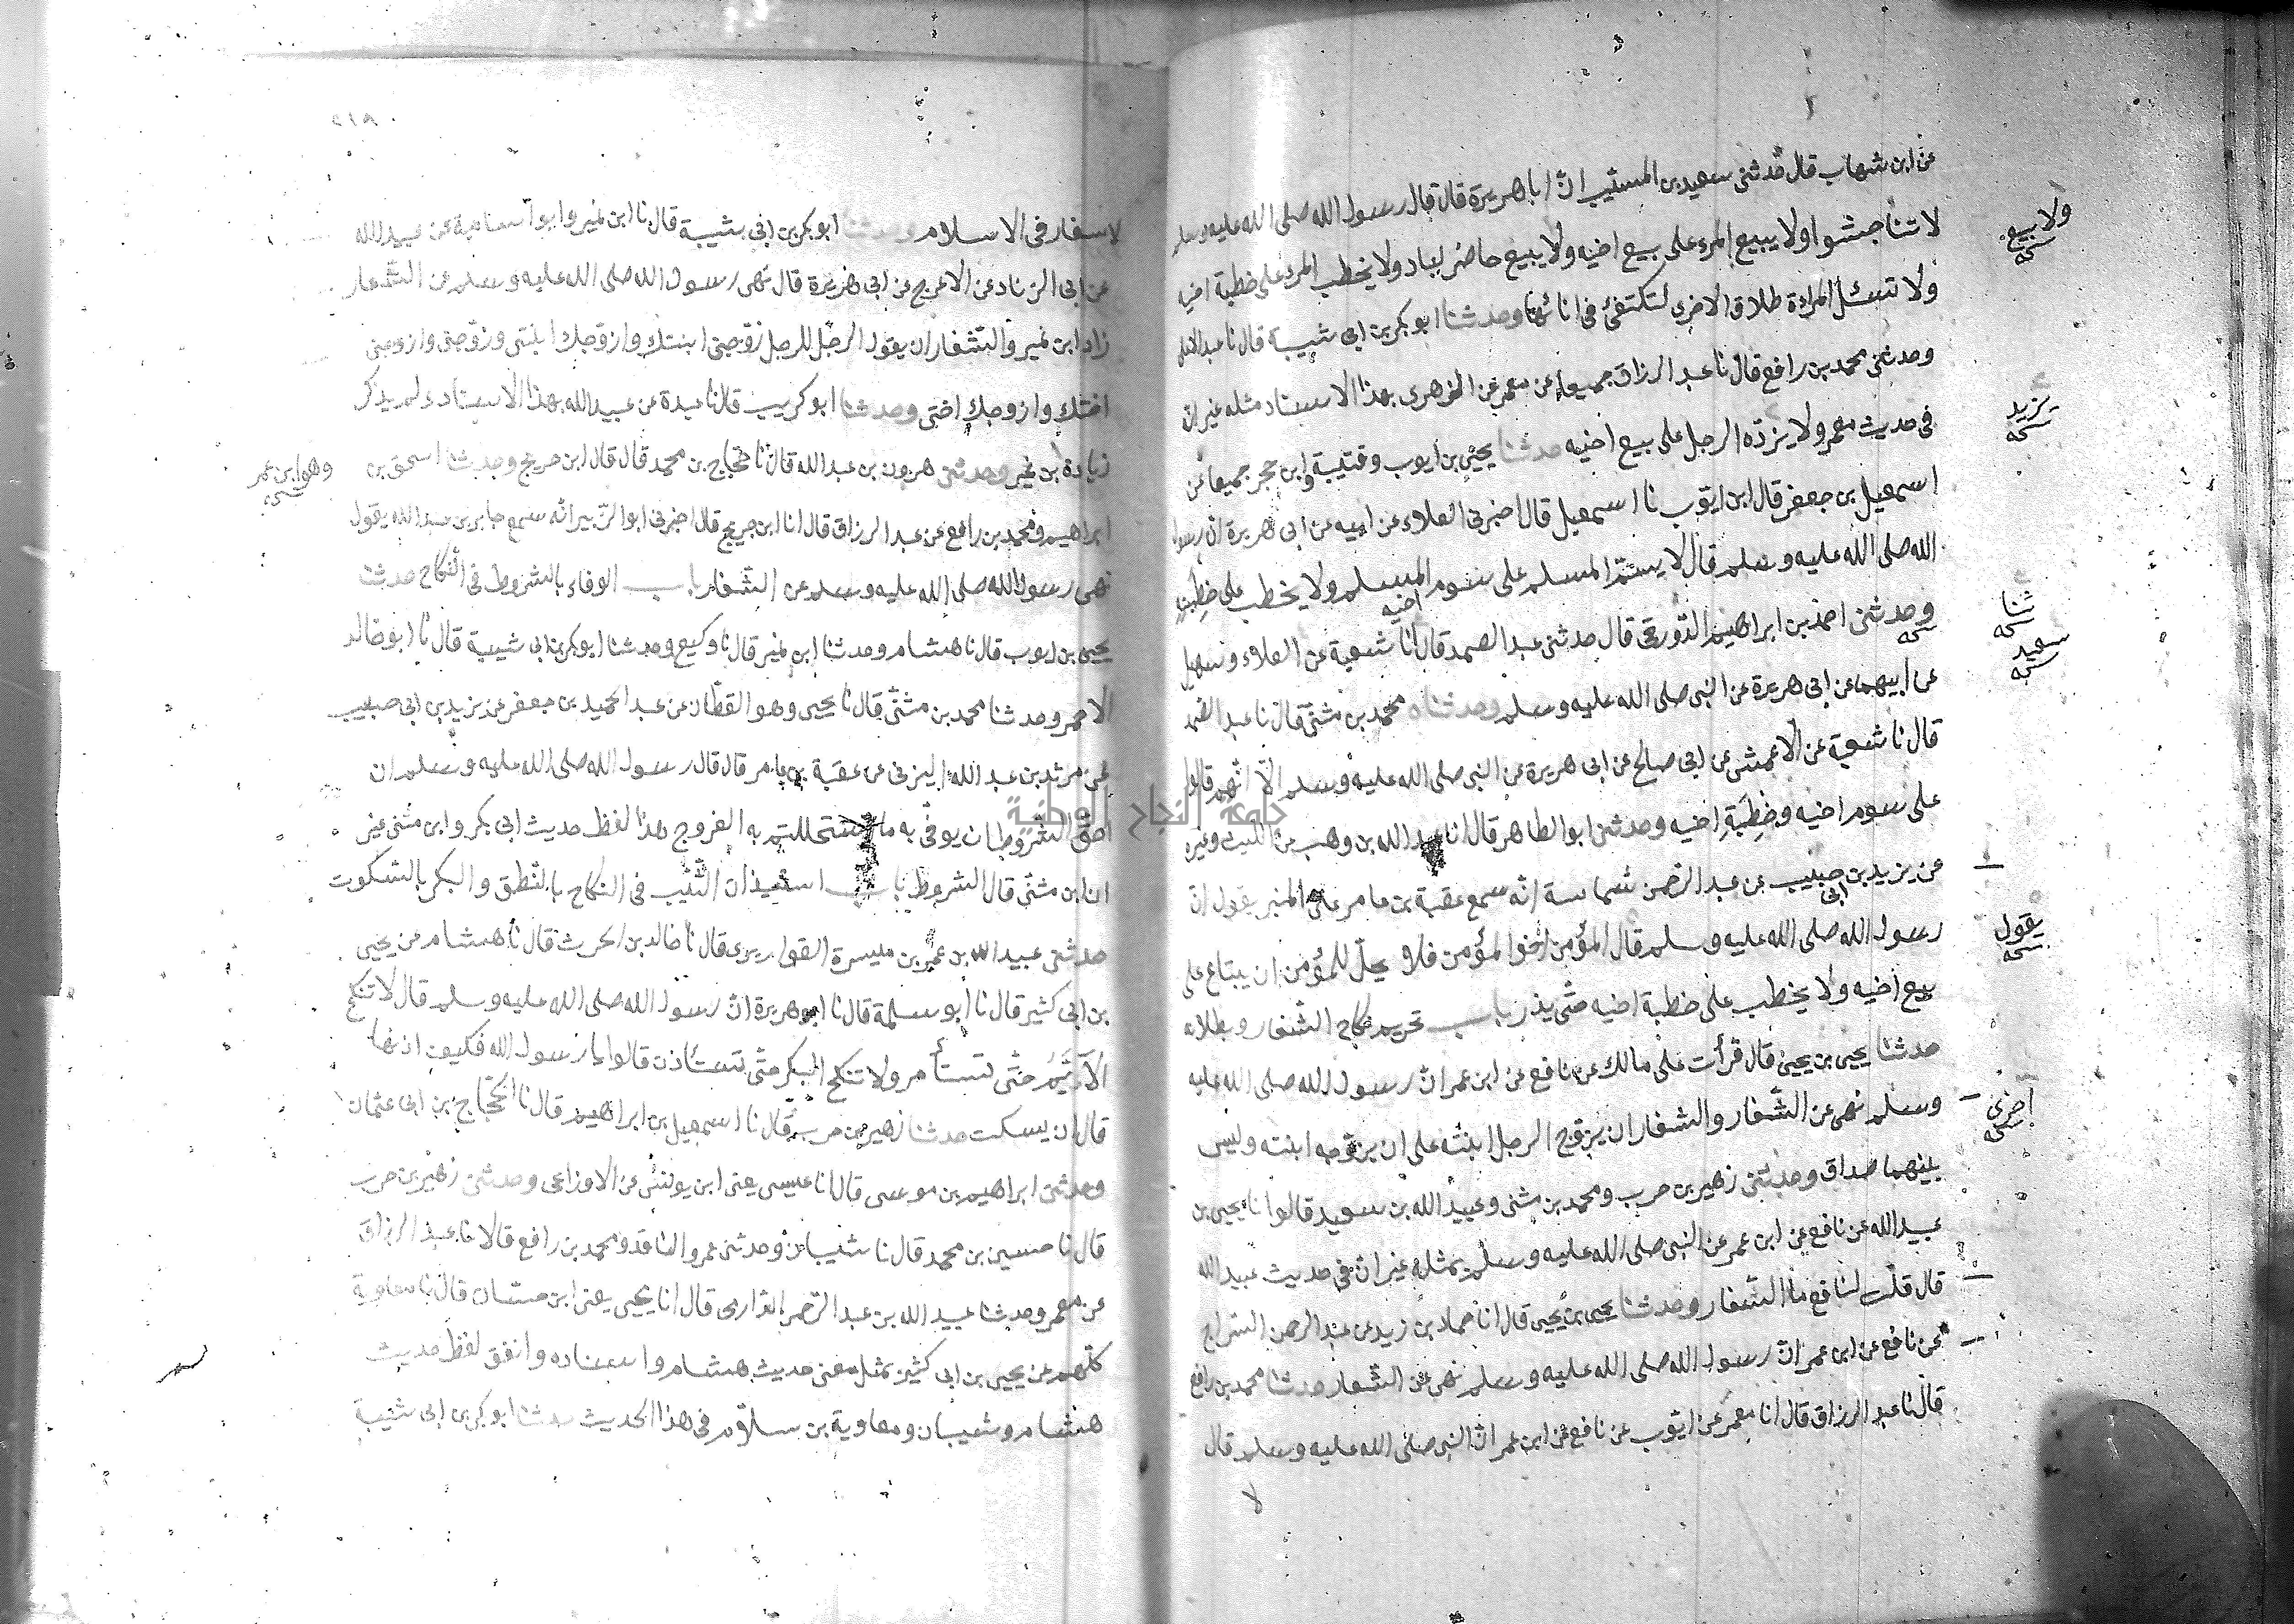 عن ابن شهاب قال حدثنى سعيد بن المسيّب انّ ابا هريرة قال قال رسول الله صلى الله عليه وسلم
لا تناجشوا ولا يبيع المرء على بيع اخيه ولا يبيع حاضر لباد ولا يخطب المرء على خطبة اخيه
ولا يبع
نسخه
ولا تسئل المراة طلاق الاخرى لتكتفئ فى انائها وحدثنا ابو بكر بن ابى شيبة قال نا عبد الاعلى
وحدثنى محمد بن رافع قال نا عبد الرزاق جميعا عن معمر عن الزهرى بهذا الاسناد مثله غير ان
فى حديث معمر ولا يزده الرجل على بيع اخيه حدثنا يحيى بن ايوب وقتيبة وابن حجر جميعا عن
يزيد
نسخه
اسمعيل بن جعفر قال ابن ايوب نا اسمعيل قال اخبرنى العلاء عن ابيه عن ابى هريرة ان رسول
الله صلى الله عليه وسلم قال لا يستم المسلم على سوم المسلم ولا يخطب على خطبته
اخيه
وحدثنى احمد بن ابراهيم الدّورقى قال حدثنى عبد الصمد قال انا شعبة عن العلاء وسهيل
ثنا
نسخه
سعيد
نسخه
عن ابيهما عن ابى هريرة عن النبى صلى الله عليه وسلم وحدثناه محمد بن مثنى قال نا عبد الصمد
قال نا شعبة عن الاعمش عن ابى صالح عن ابى هريرة عن النبى صلى الله عليه وسلم الّا انهم قالوا
على سوم اخيه وخِطبَةِ اخيه وحدثنى ابو الطاهر قال انا عبد الله بن وهب عن الليث وغيره
عن يزيد بن ابى حبيب عن عبد الرحمن شماسة انّه سمع عقبة بن عامر على المنبر يقول انّ
رسول الله صلى الله عليه وسلم قال المؤمن اخوا المؤمن فلا يحلّ للمؤمن ان يبتاع على
يقول
نسخه
بيع اخيه ولا يخطب على خطبة اخيه حتّى يذر باب تحريم نكاح الشغار وبطلانه
حدثنا يحيى بن يحيى قال قرأت على مالك عن نافع عن ابن عمر انّ رسول الله صلى الله عليه
وسلم نهى عن الشّغار والشغار ان يزوّج الرجل ابنته على ان يزوّجه ابنته وليس
اخرى
نسخه
بينهما صداق وحدثنى زهير بن حرب ومحمد بن مثنى وعبيد الله بن سعيد قالوا نا يحيى بن
عبيد الله عن نافع عن ابن عمر عن النبى صلى الله عليه وسلم بمثله غير انّ فى حديث عبيد الله
قال قلت لنافع ما الشغار وحدثنا يحيى بن يحيى قال انا حماد بن زيد عن عبد الرحمن السّراج
عن نافع عن ابن عمر انّ رسول الله صلى الله عليه وسلم نهى عن الشّغار حدثنا محمد بن رافع
قال نا عبد الرزاق قال انا معمر عن ايّوب عن نافع عن ابن عمر انّ النبى صلى الله عليه وسلم قال
لا
٢١٨
لا شغار فى الاسلام وحدثنا ابو بكر بن ابى شيبة قال نا ابن نمير وابو اسامة عن عبيد الله
عن ابى الزناد عن الاعرج عن ابى هريرة قال نهى رسول الله صلى الله عليه وسلم عن الشّغار
زاد ابن نمير والشّغار ان يقول الرجل للرجل زوّجنى ابنتك وازوّجك ابنتى وزوّجنى
اختك وازوجك اختى وحدثنا ابو كريب قال نا عبدة عن عبيد الله بهذا الاسناد ولم يذكر
زيادة بن نمير وحدثنى هرون بن عبد الله قال نا حجاج بن محمد قال قال ابن جريج وحدثنا اسحق بن
وهو ابن عمر
نسخه
ابراهيم ومحمد بن رافع عن عبد الرزاق قال انا ابن جريج قال اخبرنى ابو الزبير انّه سمع جابر بن عبد الله يقول
نهى رسول الله صلى الله عليه وسلم عن الشغار باب الوفاء بالشروط فى النّكاح حدثنا
يحيى بن ايوب قال نا هشام وحدثنا ابن نمير قال نا وكيع وحدثنا ابو بكر بن ابى شيبة قال نا ابو خالد
الاحمر وحدثنا محمد بن مثنّى قال نا يحيى وهو القطّان عن عبد الحميد بن جعفر عن يزيد بن ابى حبيب
عن مرثد بن عبد الله اليزنى عن عقبة بن عامر قال قال رسول الله صلى الله عليه وسلم ان
احقّ الشّروط ان يوفّى به ما استحللتم به الفروج هذا لفظ حديث ابى بكر وابن مثنى غير
ان ابن مثنّى قال الشروط باب استيذان الثّيّب فى النكاح بالنّطق والبكر بالسّكوت
حدثنى عبيد الله بن عمر بن ميسرة القواريرى قال نا خالد بن الحرث قال نا هشام عن يحيى
بن ابى كثير قال نا أبو سلمة قال نا ابو هريرة انّ رسول الله صلى الله عليه وسلم قال لا تنكح
الاَيّمُ حتّى تستأمر ولا تنكح البكر حتّى تستأذن قالوا يا رسول الله فكيف اذنها
قال ان تسكت حدثنا زهير بن حرب قال نا اسمعيل بن ابراهيم قال نا الحجّاج بن ابى عثمان
وحدثنى ابراهيم بن موسى قال انا عيسى يعنى ابن يونس عن الاوزاعى وحدثنى زهير بن حرب
قال نا حسين بن محمد قال نا شيبان وحدثنى عمرو الناقد ومحمد بن رافع قالا نا عبد الرزاق
عن معمر وحدثنا عبد الله بن عبد الرحمن الدارمى قال انا يحيى يعنى ابن حسّان قال نا معاوية
كلّهم عن يحيى بن ابى كثير بمثل معنى حديث هشام واسناده واتفق لفظ حديث
هشام وشيبان ومعاوية بن سلّام فى هذا الحديث حدثنا ابو بكر بن ابى شيبة
جامعة النجاح الوطنية